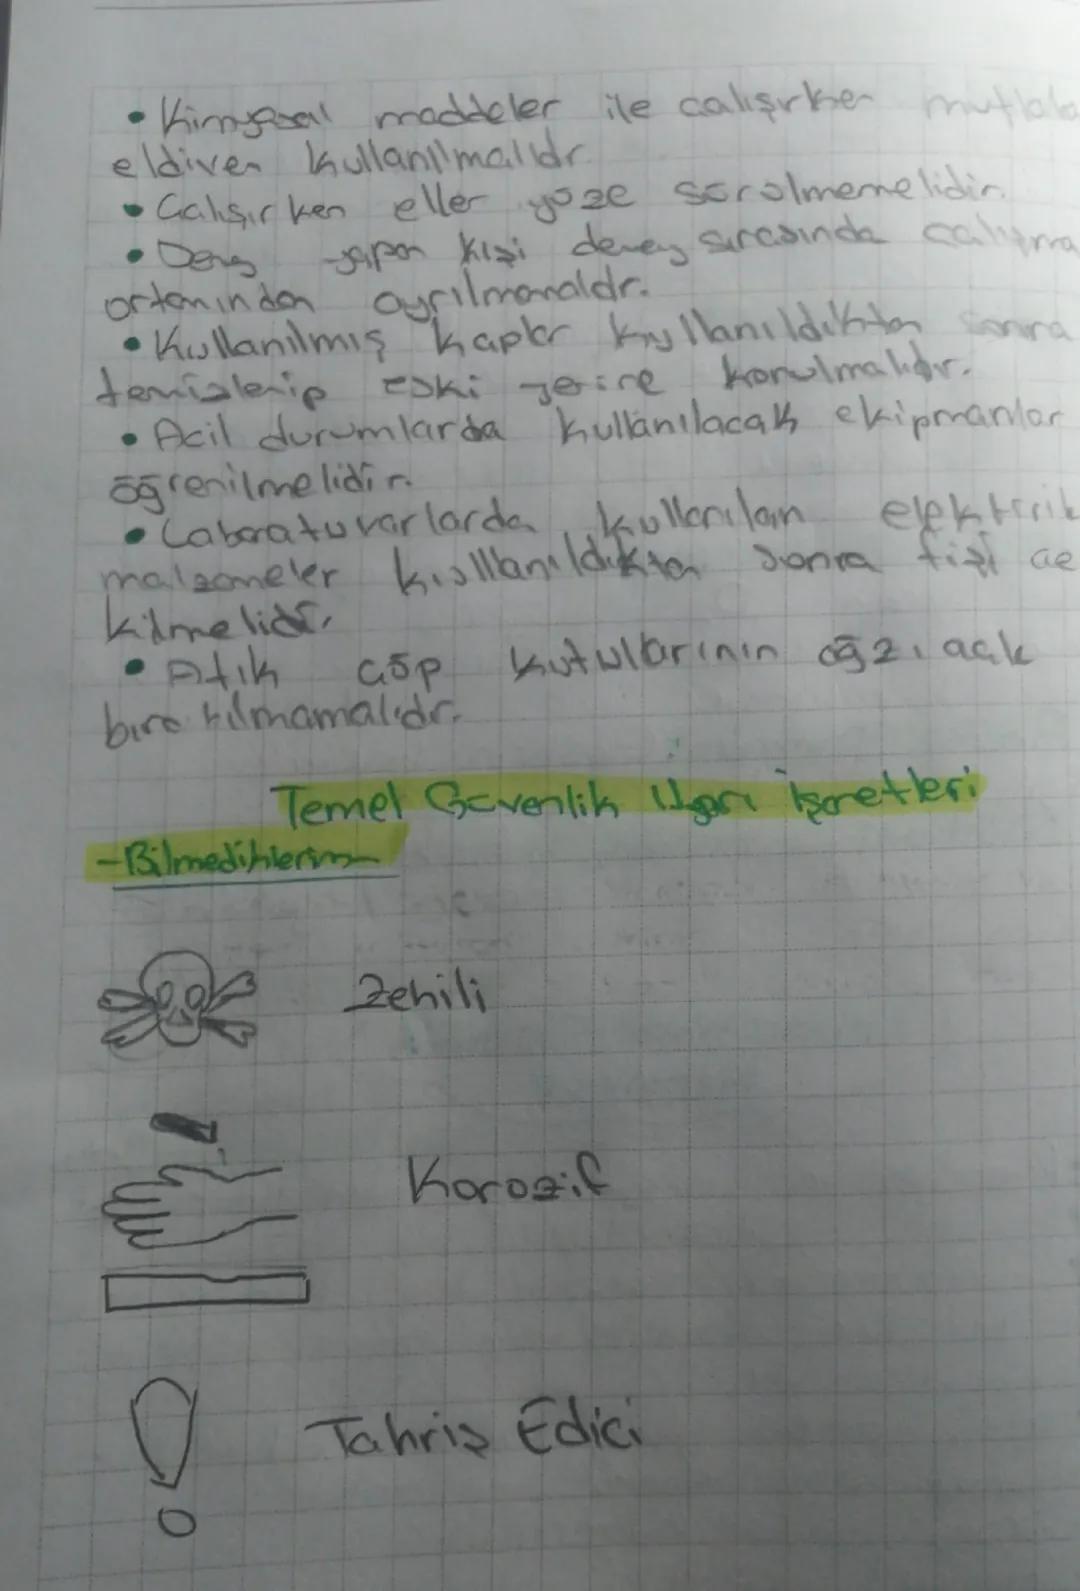 • Kimyasal maddeler ile calışırken mutlaka
eldiven kullanılmalıdr.
• Calışırken eller yüze sürülmemelidir.
• Deney yapan kişi deney sırasında calışma
ortamından ayrılmamaldr.
• Kullanılmış kaplar kullanıldıktan sonra
temizlenip eski yerine konulmalıdır.
• Acil durumlarda kullanılacak ekipmanlar
öğrenilmelidir.
• Laboratuvarlarda kullanılan elektirik
malzemeler kullanıldıktan sonra fişi ce
kilmelidir.
• Atık cöp kutularının ağzı acık
bırakılmamalıdr.
Temel Güvenlik Uyarı İşaretleri
-Bilmediklerim
Zehili
Korozif
Tahriş Edici